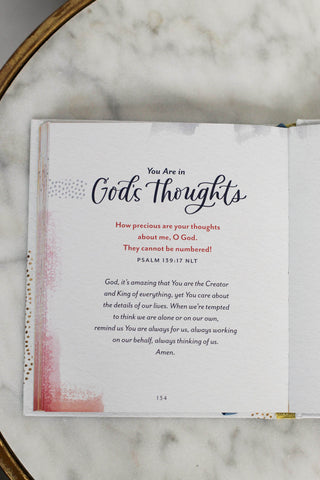 You Are in
God's Thoughts
How precious are your thoughts
about me, O God.
They cannot be numbered!
PSALM 139:17 NLT
God, it's amazing that You are the Creator
and King of everything, yet You care about
the details of our lives. When we're tempted
to think we are alone or on our own,
remind us You are always for us, always working
on our behalf, always thinking of us.
Amen.
134